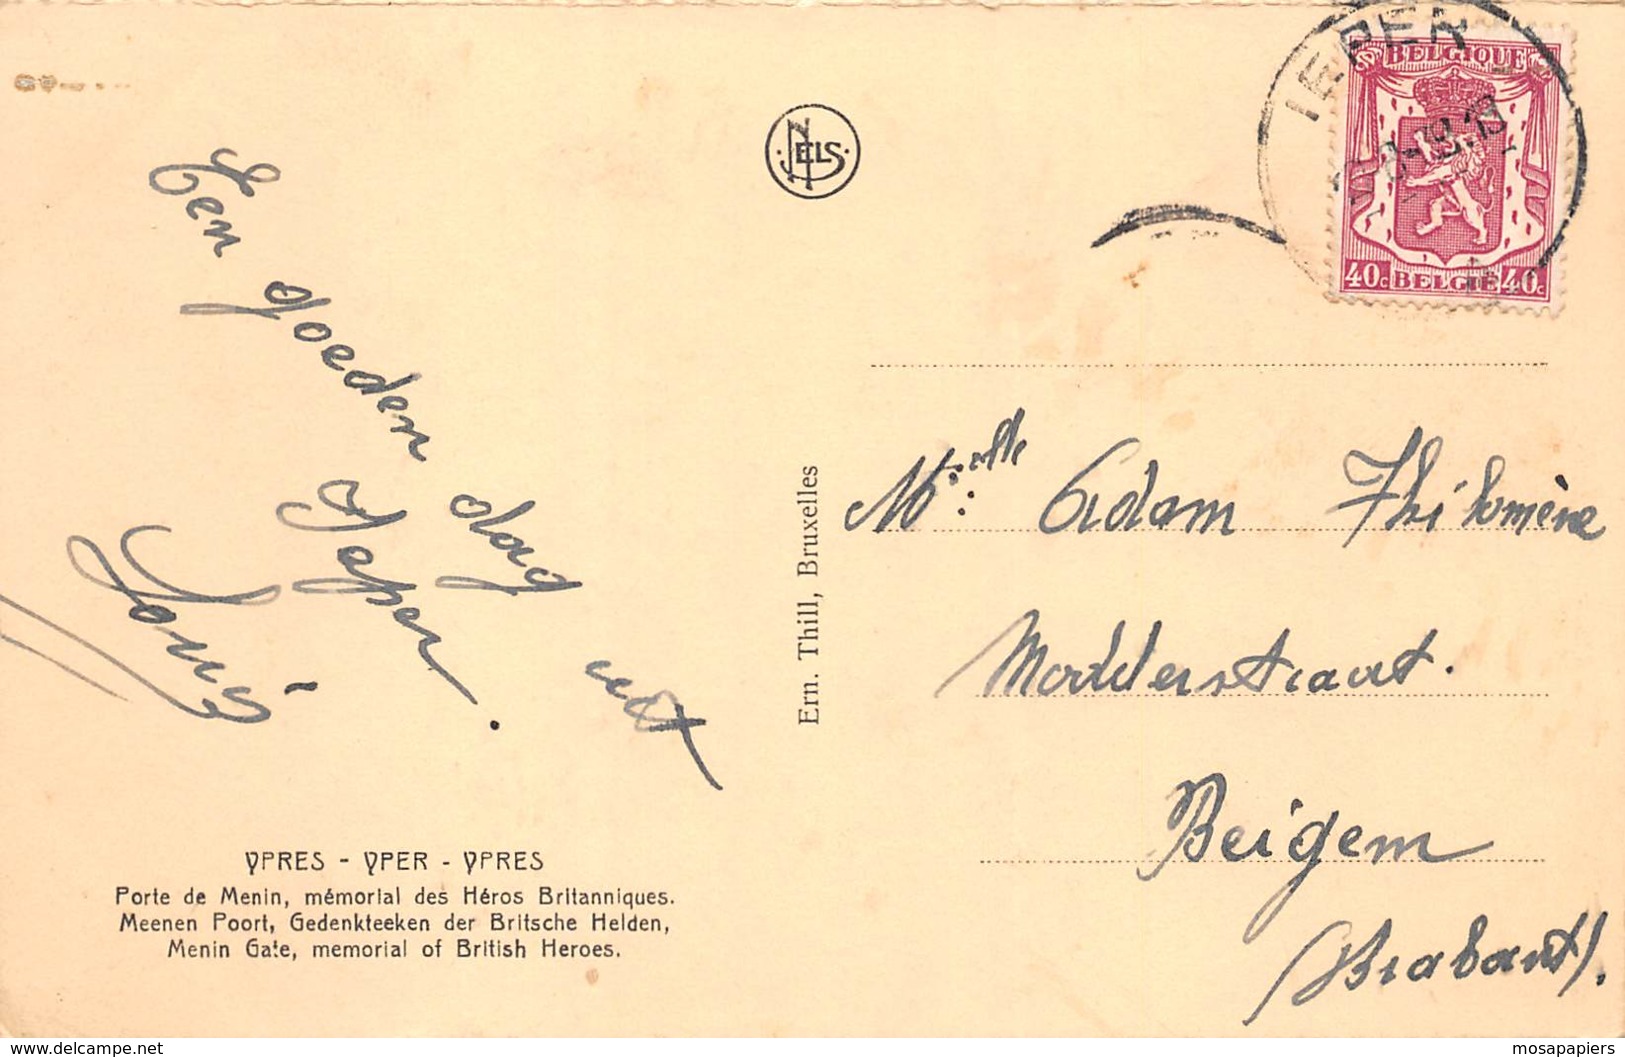 IEPER
BELGIQUE
40c BELGIE 40c
NELS
Een goeden dag uit
Ieper.
Ern. Thill, Bruxelles
Melle Adam Philomène
Modderstraat.
Beigem
Brabant).
YPRES - YPER - YPRES
Porte de Menin, mémorial des Héros Britanniques.
Meenen Poort, Gedenkteeken der Britsche Helden,
Menin Gate, memorial of British Heroes.
www.delcampe.net
mosapapiers